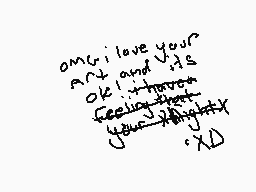 OMG i love your
Art and its
ok! i have a
feeling that
your right
XD